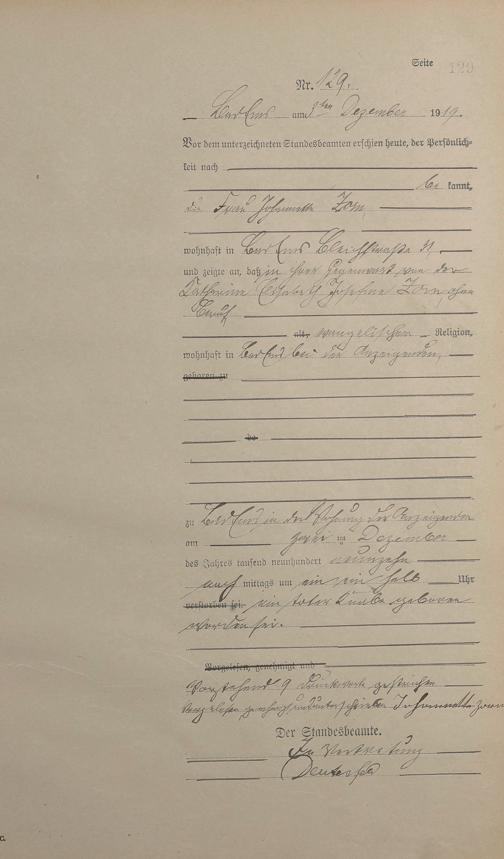 Seite 129
Nr. 129.
Bad Ems am 3ten Dezember 1919.
Vor dem unterzeichneten Standesbeamten erschien heute, der Persönlich-
keit nach
be kannt,
die Frau Johannette Zorn
wohnhaft in Bad Ems Bleichstraße 31,
und zeigte an, daß in ihrer Gegenwart von der
Katharine Elisabeth Josephine Zorn, ohne
Beruf
alt, evangelischer Religion,
wohnhaft in Bad Ems bei der Anzeigenden,
geboren zu
zu Bad Ems in der Wohnung der Anzeigenden
am zwei ten Dezember
des Jahres tausend neunhundert neunzehn
nach mittags um ein ein halb Uhr
verstorben sei. ein toter Knabe geboren
worden sei.
Vorgelesen, genehmigt und
Vorstehend 9 Druckworte gestrichen
Vorgelesen genehmigt und unterschrieben Johannette Zorn
Der Standesbeamte.
In Vertretung
C.